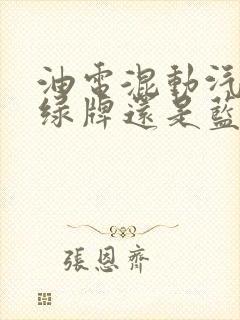 油電混動汽
綠牌還是藍
張恩齊